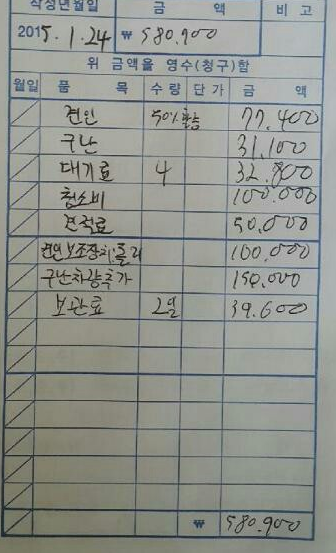 작성년월일 금 액 비 고
2015.1.24 ₩ 580.900
위 금액을 영수(청구)함
월일 품 목 수량 단가 금 액
견인 50%할증 77.400
구난 31,100
대기료 4 32.800
청소비 100.000
견적료 50,000
견인보조장치:돌리 100,000
구난차량추가 150.000
보관료 2일 39.600
₩ 580.900